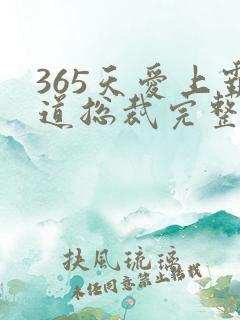 365天爱上霸
道总裁完整
扶風琉璃
未经同意禁止转载